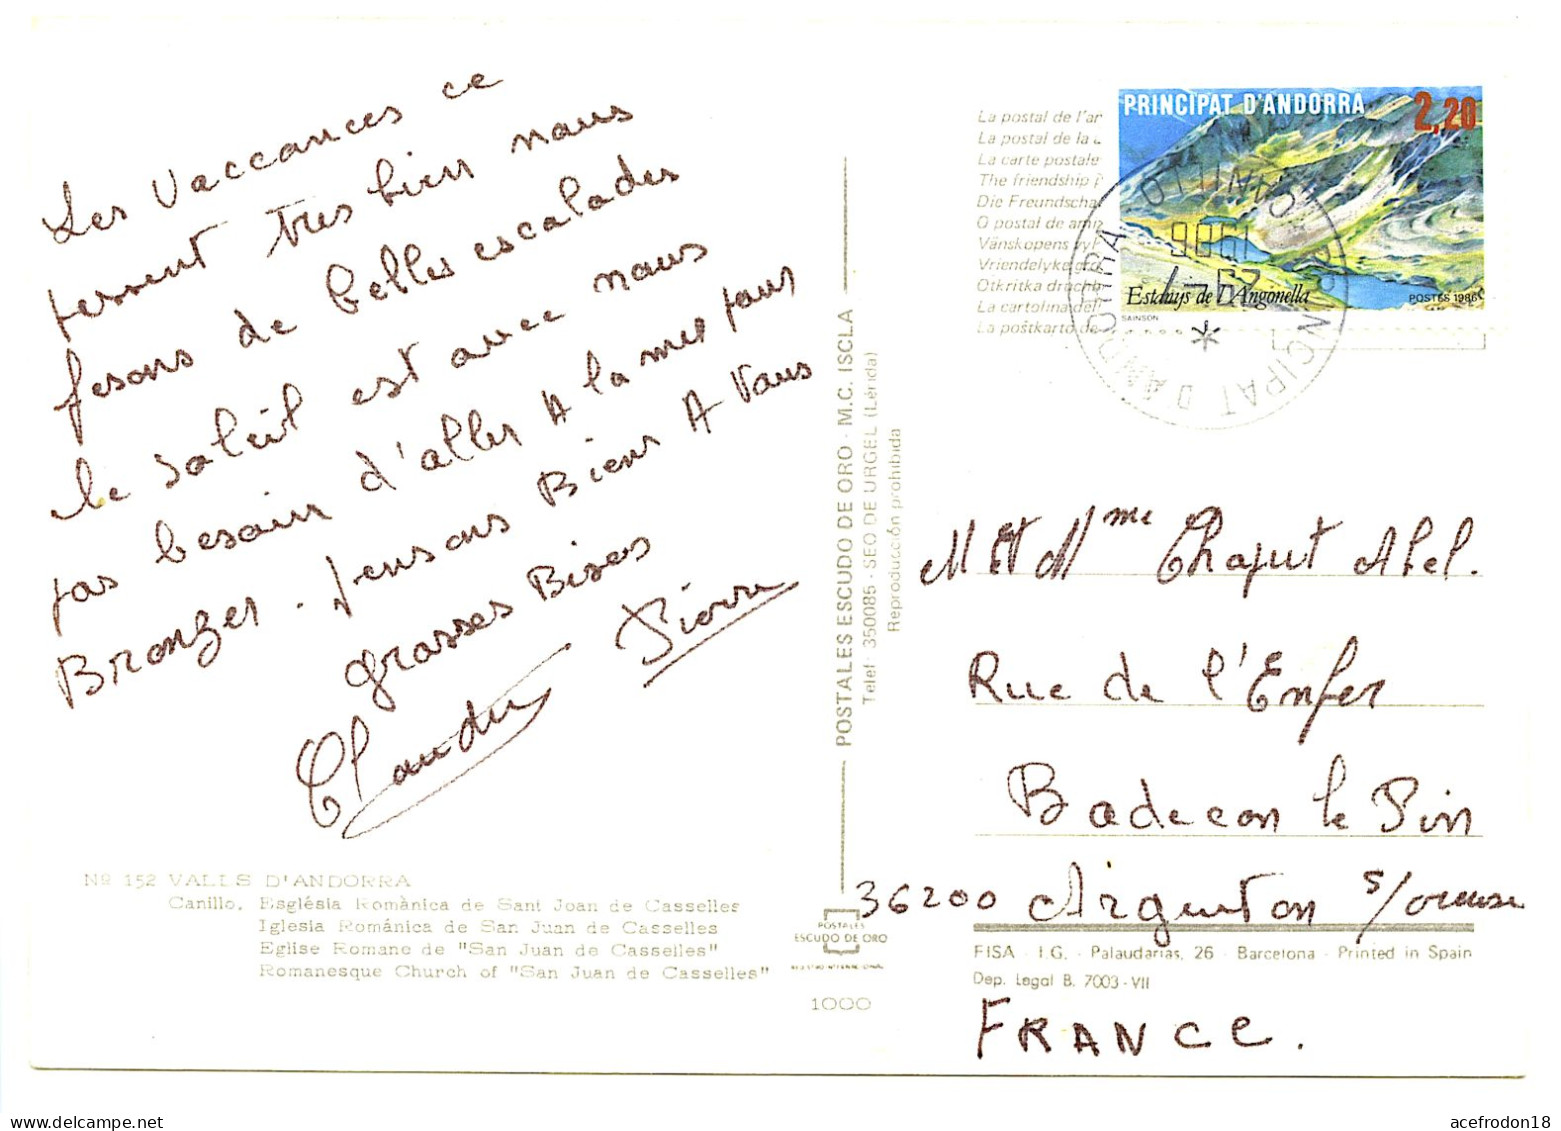 Les vaccances ce
passent tres bien nous
fesons de belles escalades
le soleil est avec nous
pas besoin d'aller A la mer pour
Bronzer. pensons Bien A vous
grosses Bises
Claudie Pierre
Nº 152 VALLS D'ANDORRA
Canillo. Església Romànica de Sant Joan de Casselles
Iglesia Románica de San Juan de Casselles
Eglise Romane de "San Juan de Casselles"
Romanesque Church of "San Juan de Casselles"
POSTALES ESCUDO DE ORO · M.C. ISCLA
Telef. 350085 · SEO DE URGEL (Lérida)
Reproducción prohibida
POSTALES
ESCUDO DE ORO
REGISTRO INTERNACIONAL
1000
La postal de l'a
La postal de la
La carte postale
The friendship
Die Freundscha
O postal de ami
Vänskopens
Vriendelyke
Otkritka
La cartolina del
La poŝtkarto de
PRINCIPAT D'ANDORRA 2,20
Estanys de l'Angonella
SAINSON POSTES 1986
CANILLO
PRINCIPAT D'ANDORRA
1986
M et Mme Chaput Abel.
Rue de l'Enfer
Badecon le Pin
36200 Argenton s/creuse
FISA · I.G. · Palaudarias, 26 · Barcelona · Printed in Spain
Dep. Legal B. 7003-VII
FRANCE.
acefrodon18